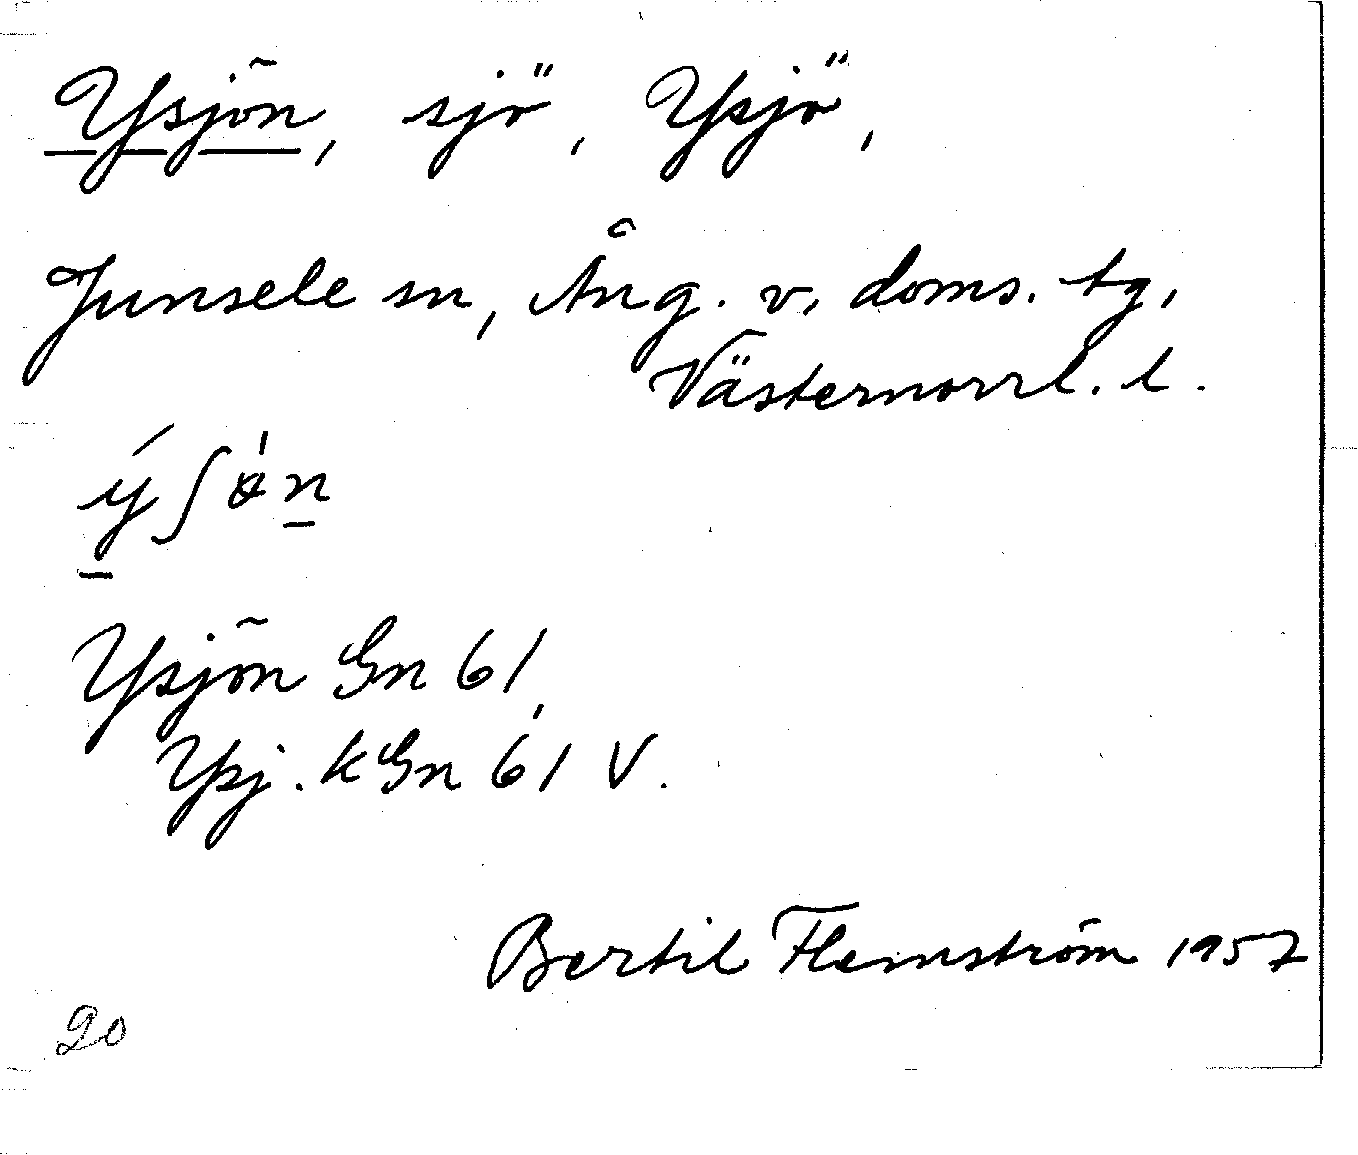 Ysjön, sjö, Ysjö,
Junsele sn, Ång. v. doms. tg,
Västernorrl. l.
Ysjön Gn 61,
Ysj. k Gn 61 V.
Bertil Flemström 1957
20